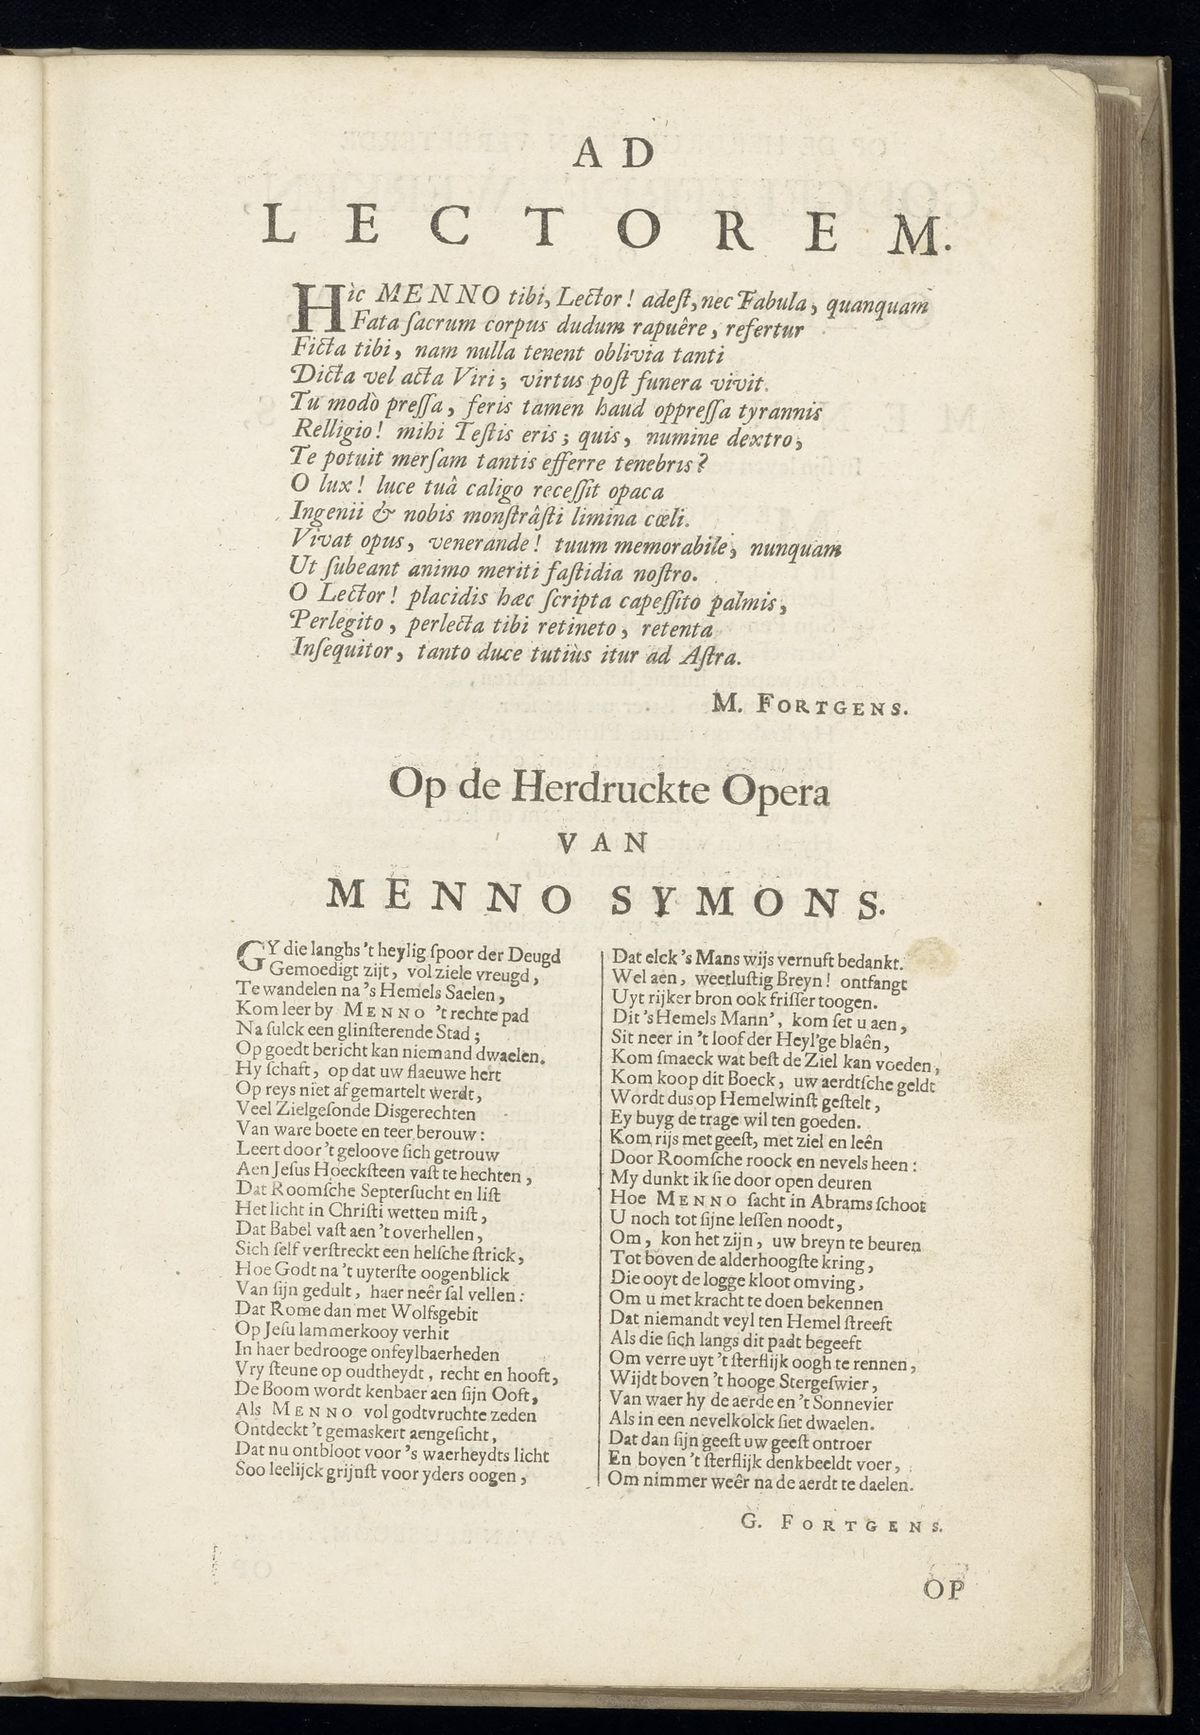 AD
LECTOREM.
Hìc MENNO tibi, Lector! adeſt, nec Fabula, quanquam
Fata ſacrum corpus dudum rapuêre, refertur
Ficta tibi, nam nulla tenent oblivia tanti
Dicta vel acta Viri; virtus poſt funera vivit.
Tu modò preſſa, feris tamen haud oppreſſa tyrannis
Relligio! mihi Teſtis eris; quis, numine dextro,
Te potuit merſam tantis efferre tenebris?
O lux! luce tuâ caligo receſſit opaca
Ingenii & nobis monſtrâſti limina cœli.
Vivat opus, venerande! tuum memorabile, nunquam
Ut ſubeant animo meriti faſtidia noſtro.
O Lector! placidis hæc ſcripta capeſſito palmis,
Perlegito, perlecta tibi retineto, retenta
Inſequitor, tanto duce tutiùs itur ad Aſtra.
M. FORTGENS.
Op de Herdruckte Opera
VAN
MENNO SYMONS.
GY die langhs 't heylig ſpoor der Deugd
Gemoedigt zijt, vol ziele vreugd,
Te wandelen na 's Hemels Saelen,
Kom leer by MENNO 't rechte pad
Na ſulck een glinſterende Stad;
Op goedt bericht kan niemand dwaelen.
Hy ſchaft, op dat uw flaeuwe hert
Op reys niet af gemartelt werdt,
Veel Zielgeſonde Disgerechten
Van ware boete en teer berouw:
Leert door 't geloove ſich getrouw
Aen Jeſus Hoeckſteen vaſt te hechten,
Dat Roomſche Septerſucht en liſt
Het licht in Chriſti wetten miſt,
Dat Babel vaſt aen 't overhellen,
Sich ſelf verſtreckt een helſche ſtrick,
Hoe Godt na 't uyterſte oogenblick
Van ſijn gedult, haer neêr ſal vellen:
Dat Rome dan met Wolfsgebit
Op Jeſu lammerkooy verhit
In haer bedrooge onfeylbaerheden
Vry ſteune op oudtheydt, recht en hooft,
De Boom wordt kenbaer aen ſijn Ooft,
Als MENNO vol godtvruchte zeden
Ontdeckt 't gemaskert aengeſicht,
Dat nu ontbloot voor 's waerheydts licht
Soo leelijck grijnſt voor yders oogen,
Dat elck 's Mans wijs vernuft bedankt.
Wel aen, weetluſtig Breyn! ontfangt
Uyt rijker bron ook friſſer toogen.
Dit 's Hemels Mann', kom ſet u aen,
Sit neer in 't loof der Heyl'ge blaên,
Kom ſmaeck wat beſt de Ziel kan voeden,
Kom koop dit Boeck, uw aerdtſche geldt
Wordt dus op Hemelwinſt geſtelt,
Ey buyg de trage wil ten goeden.
Kom rijs met geeſt, met ziel en leên
Door Roomſche roock en nevels heen:
My dunkt ik ſie door open deuren
Hoe MENNO ſacht in Abrams ſchoot
U noch tot ſijne leſſen noodt,
Om, kon het zijn, uw breyn te beuren
Tot boven de alderhoogſte kring,
Die ooyt de logge kloot omving,
Om u met kracht te doen bekennen
Dat niemandt veyl ten Hemel ſtreeft
Als die ſich langs dit padt begeeft
Om verre uyt 't ſterflijk oogh te rennen,
Wijdt boven 't hooge Stergeſwier,
Van waer hy de aerde en 't Sonnevier
Als in een nevelkolck ſiet dwaelen.
Dat dan ſijn geeſt uw geeſt ontroer
En boven 't ſterflijk denkbeeldt voer,
Om nimmer weêr na de aerdt te daelen.
G. FORTGENS.
OP